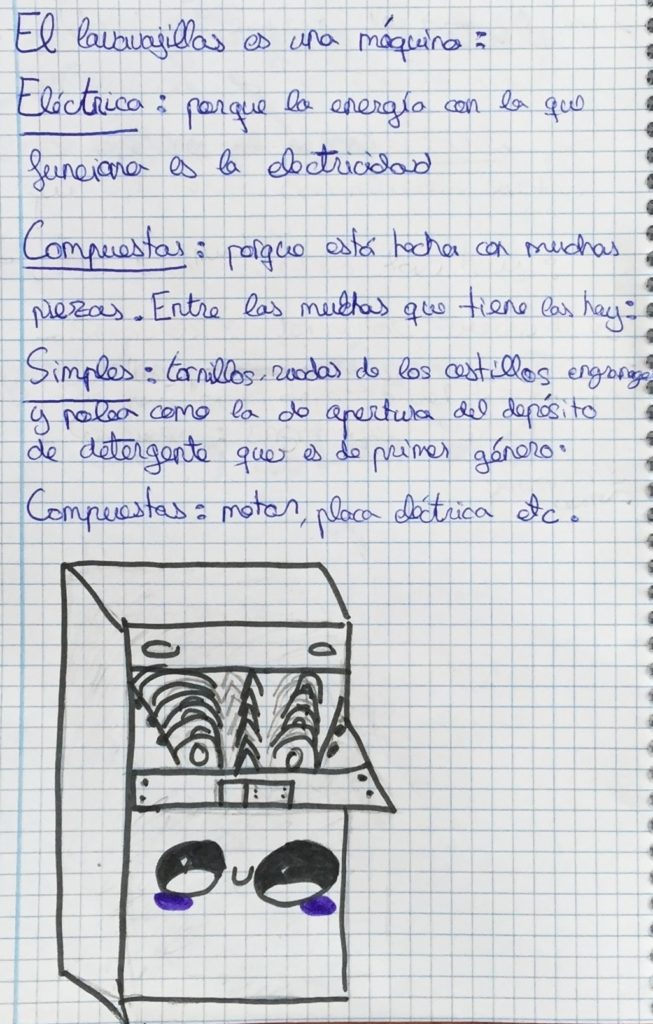 El lavavajillas es una máquina:
Eléctrica: porque la energía con la que
funciona es la electricidad
Compuestas: porque está hecha con muchas
piezas. Entre las muchas que tiene las hay:
Simples: tornillos, ruedas de los cestillos engranage
y polea como la de apertura del depósito
de detergente que es de primer género.
Compuestas: motor, placa eléctrica etc.